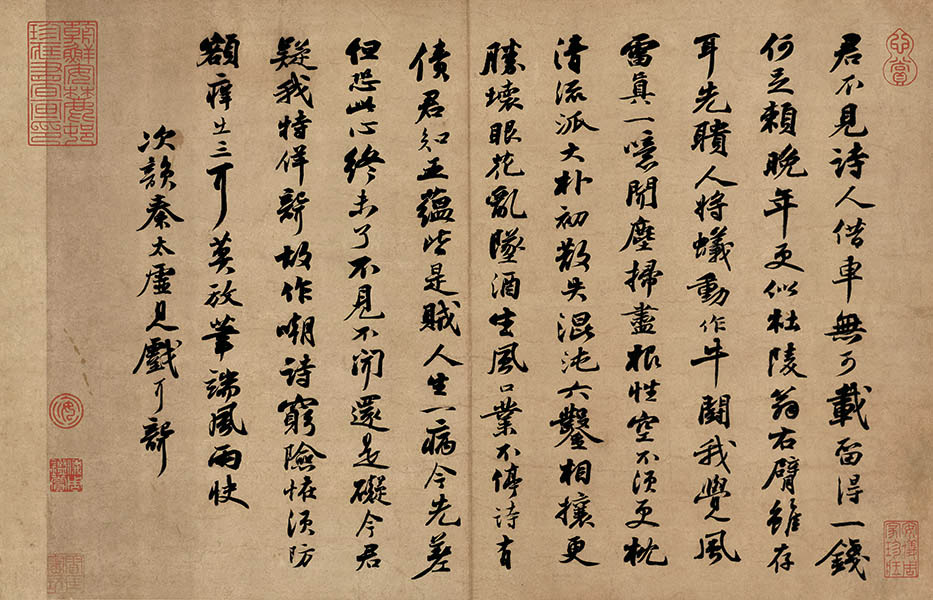 君不見詩人借車無可載留得一錢
何足賴晚年更似杜陵翁右臂雖存
耳先聵人將蟻動作牛鬭我覺風
雷真一噫聞塵掃盡根性空不須更枕
清流派大朴初散失混沌六鑿相攘更
勝壞眼花亂墜酒生風口業不停詩有
債君知五蘊皆是賊人生一病今先差
但恐此心終未了不見不聞還是礙今君
疑我特佯聾故作嘲詩窮險怪須防
額癢出三耳莫放筆端風雨快
次韻秦太虛見戲耳聾
心賞
安儀周家珍藏
朝鮮安麓邨
珍藏書畫印